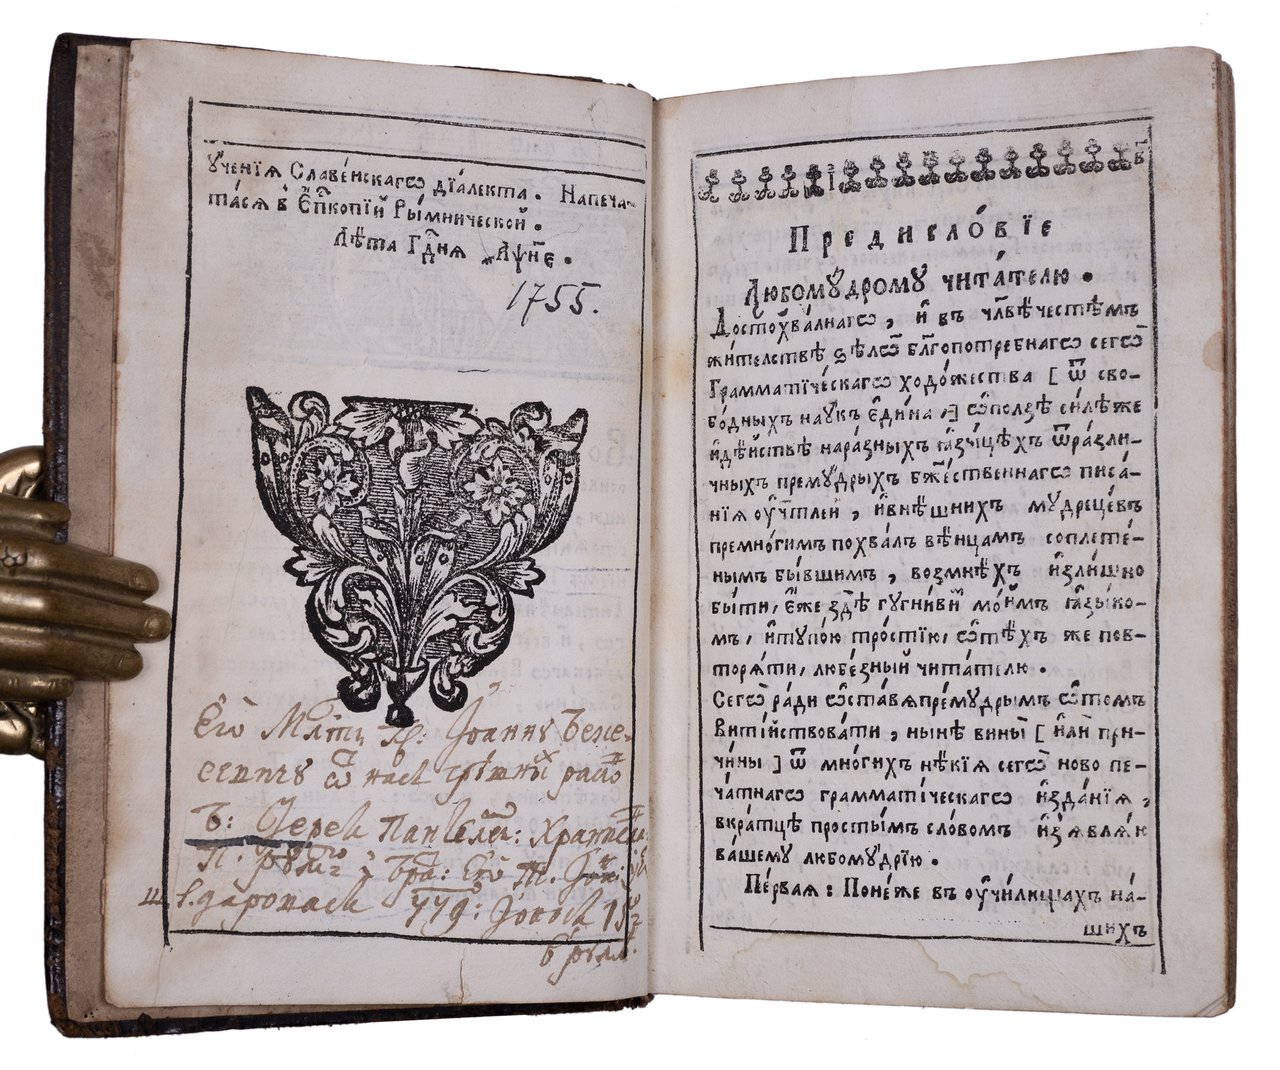 Ученїѧ Славе́нскагѡ дїале́кта. Напеча-
тасѧ в Епⷭ҇копїй Ры́мнической.
Лѣта Гдⷭ҇нѧ ҂аѱн҃є.
1755.
Предисло́вїе
Любомꙋ́дромꙋ чита́телю.
Достохва́лнагѡ, и҆ въ чл҃вѣчестѣмъ
жи́телствѣ ѕѣлѡ̀ бл҃гопотребнагѡ сегѡ̀
Грамматїче́скагѡ ходо́жества [ ѿ сво-
бо́дныхъ наꙋкъ є҆ди́на,] ѡ҆по́лзѣ си́лѣже
и҆дѣ́йствѣ нара́зныхъ ꙗ҆зы́цѣхъ ѿразли́-
чныхъ премꙋ́дрыхъ бжⷭ҇е́ственнагѡ писа́-
нїѧ ᲂу҆чт҃лей, и҆внѣ́шнихъ мꙋдрецѣ́въ
премно́гимъ похва́лъ вѣнца́мъ соплете́-
нымъ бы́вшимъ, возмнѣ́хъ и҆зли́шно
бы́ти, є҆́же здѣ̀ гꙋгни́вы́й мо́имъ ꙗ҆зы́ко-
мъ, и҆тꙋпо́ю тро́стїю, ѡ҆тѣ́хъ же пов-
торѧ́ти, любе́зный чита́телю.
Сегѡ̀ ра́ди ѡ҆ста́вѧ премꙋ́дрымъ ѡ҆то́мъ
Вити́йствова́ти, ны́нѣ вины̀ [ и҆лѝ при-
чи́ны ] ѿ мно́гихъ нѣ́кїѧ сегѡ̀ ново пе-
ча́тнагѡ грамматїческагѡ и҆зда́нїѧ,
вкра́тцѣ просты́мъ сло́вомъ и҆з̾ѧвлѧ́ю
ва́шемꙋ любомꙋ́дрїю.
Пе́рваѧ: Поне́же въ ᲂу҆чи́лищахъ на́-
шихъ